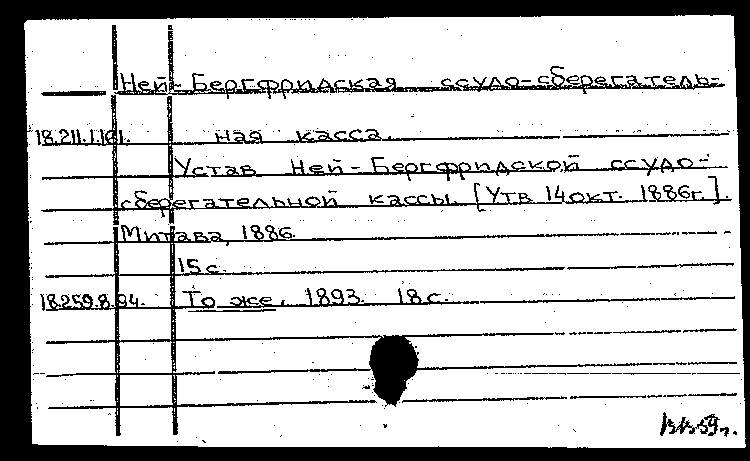 Ней-Бергфридская ссудо-сберегатель-
18.211.1.161. ная касса.
Устав Ней-Бергфридской ссудо-
сберегательной кассы. [Утв 14 окт. 1886г.].
Митава, 1886.
15 с.
18.259.8.94. То же, 1893. 18 с.